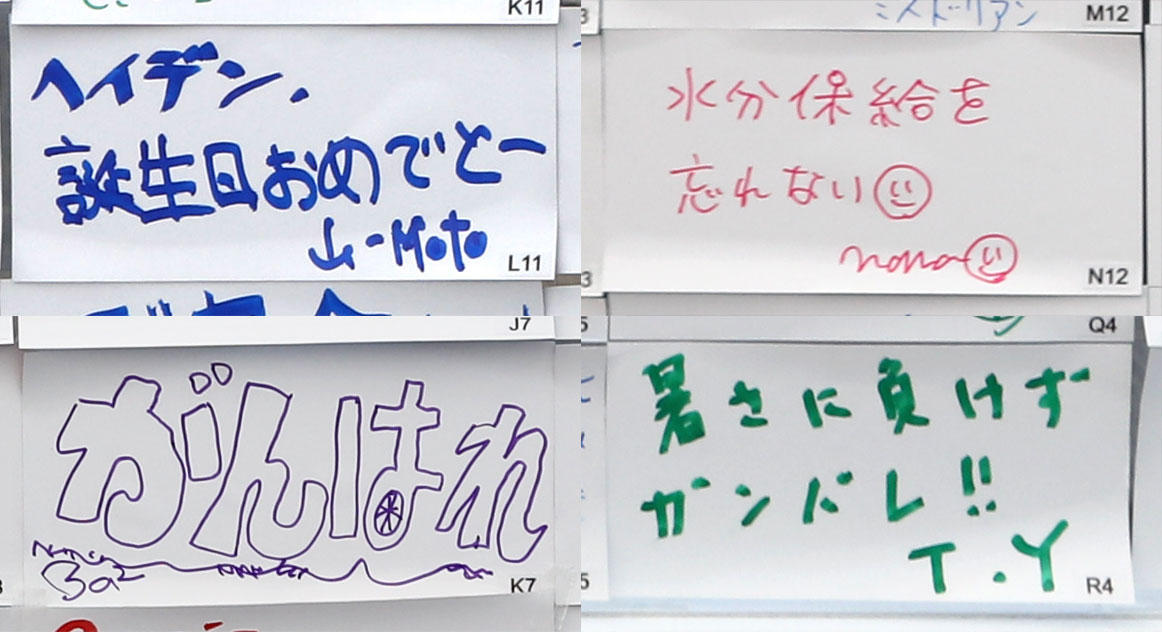 K11
ヘイデン.
誕生日おめでとー
山-Moto
L11
ミスドリアン
M12
水分保給を
忘れない
nona
N12
J7
がんはれ
Ba²
K7
Q4
暑さに負けず
ガンバレ!!
T.Y
R4